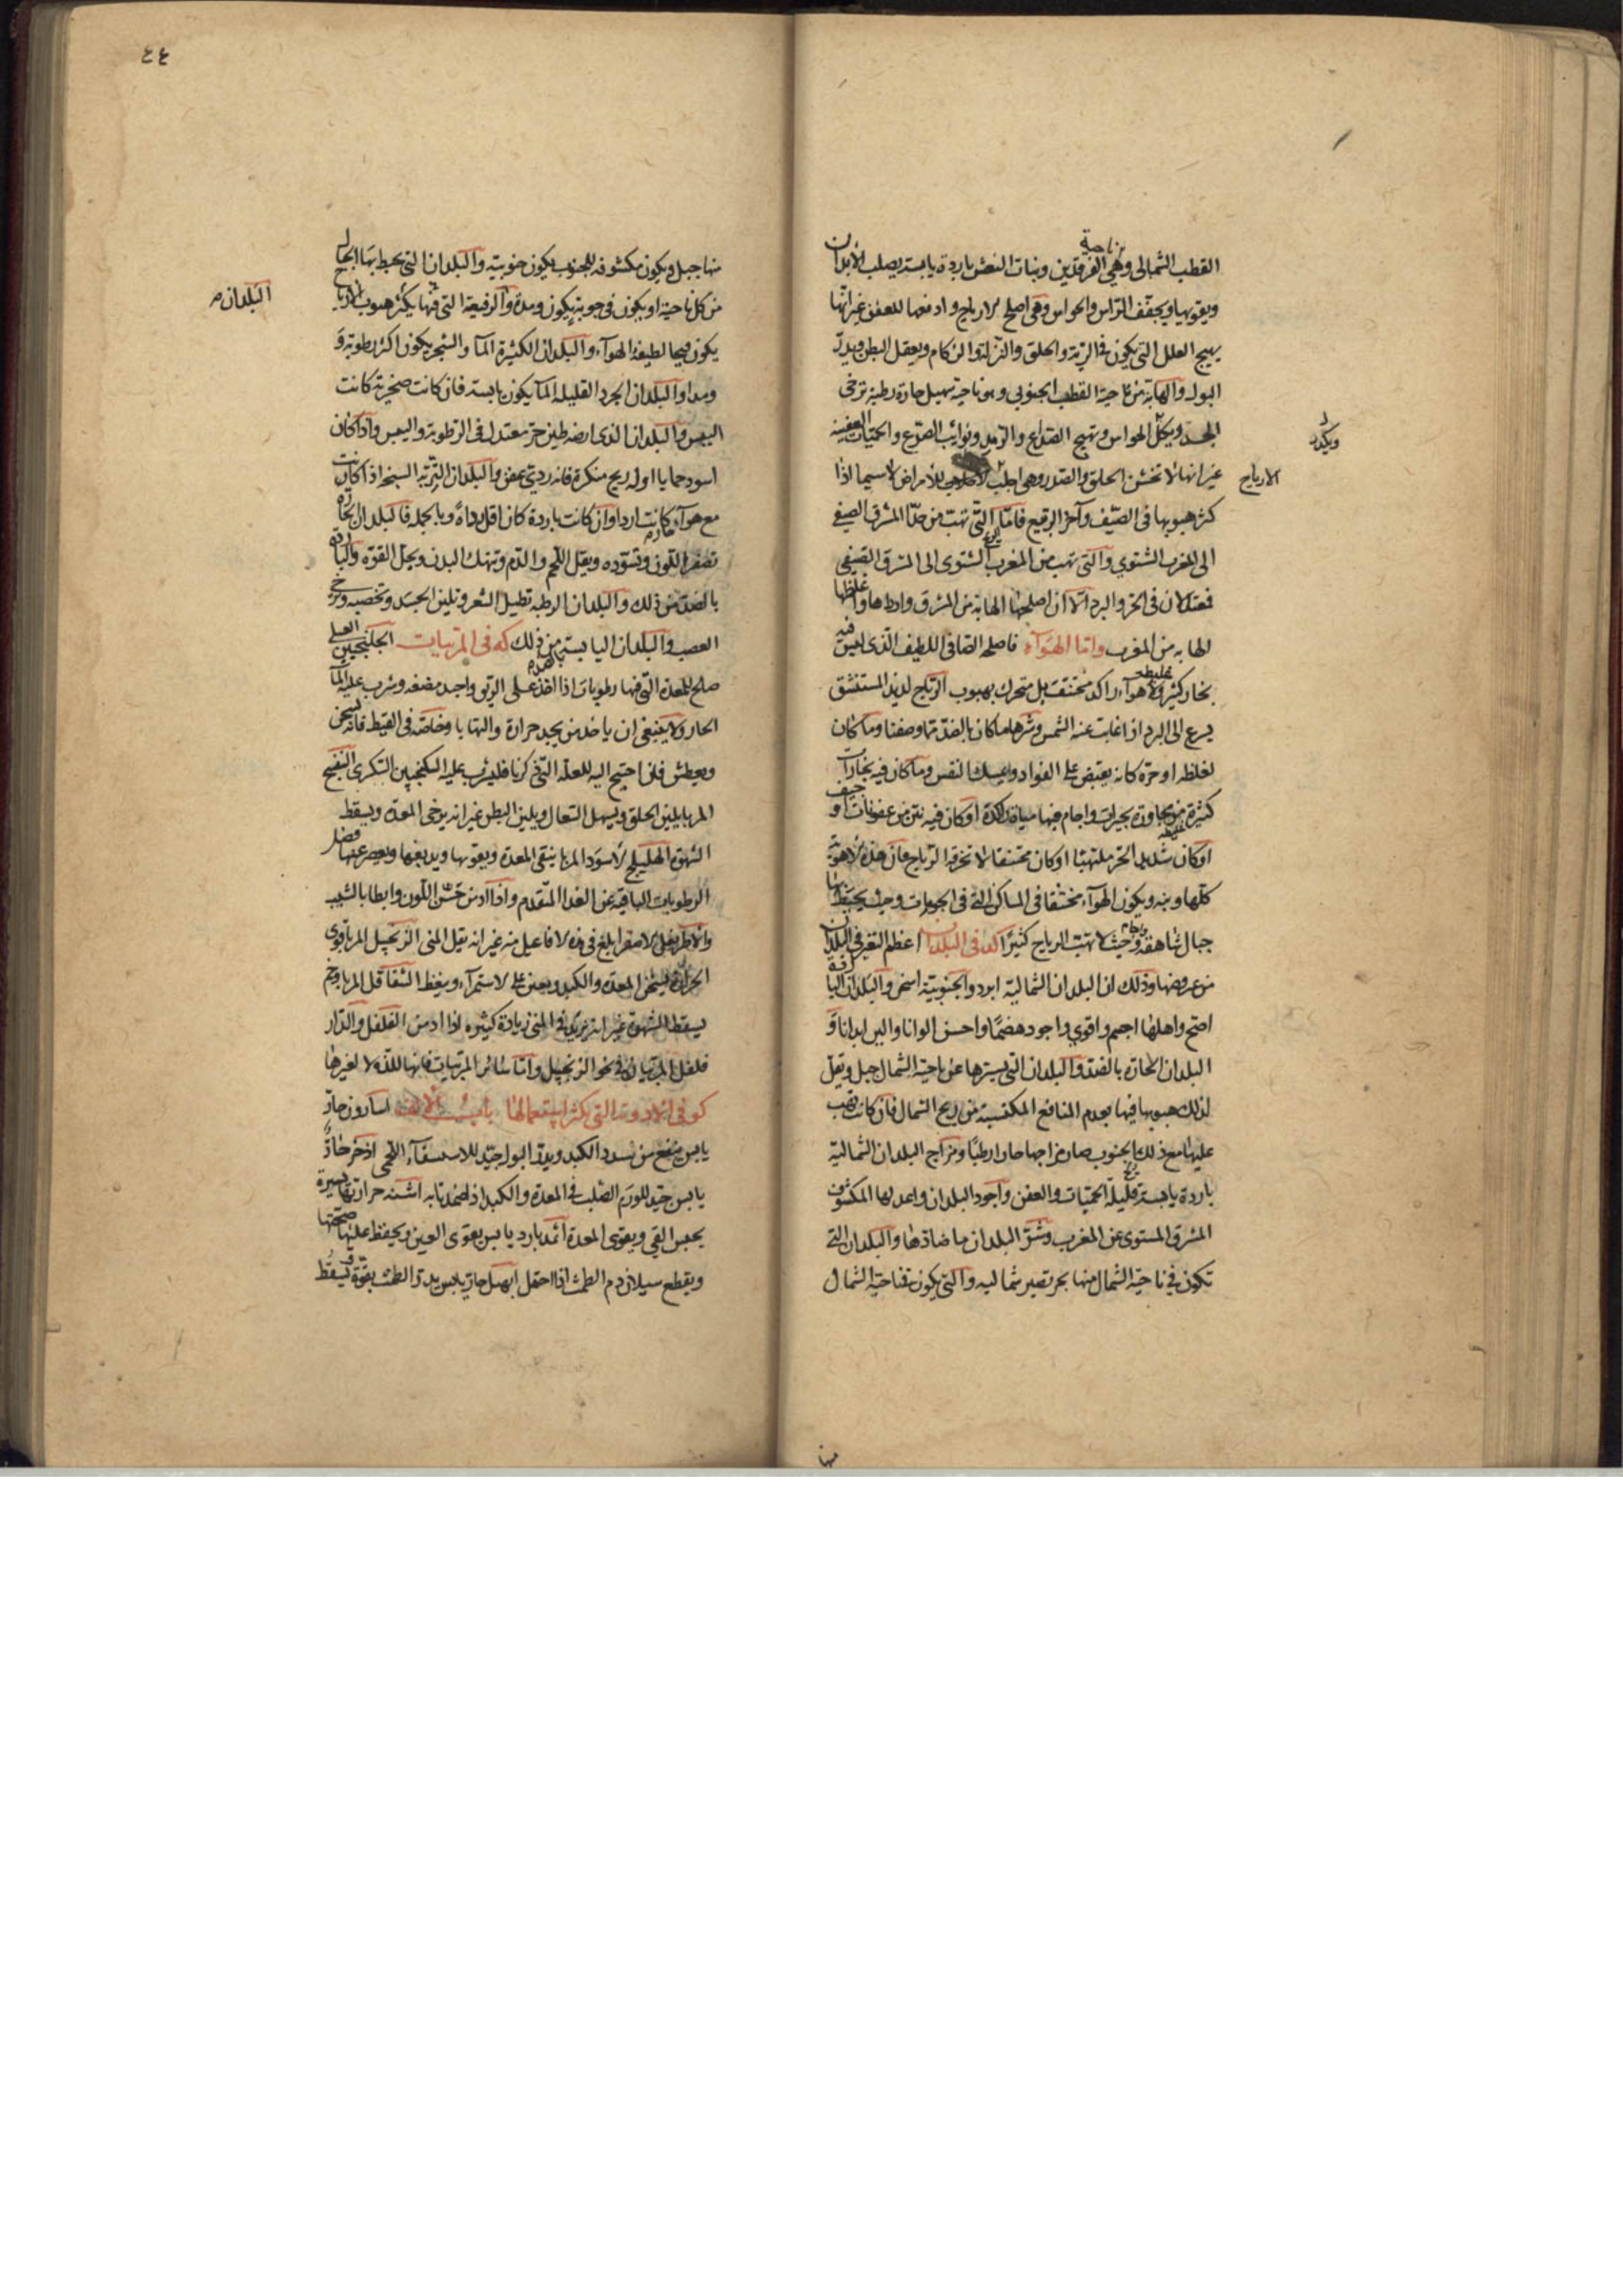 القطب الشمالى وهي ناحية الفرقدين وبنات النعش باردة يابسة يصلب الأبدان
ويقويها ويجفف الراس والحواس وهى اصلح الارياح وادفعها للعفن غير انها
يهيج العلل التى يكون فى الرية والحلق والنزلة والزكام ويعقل البطن ويدر
البول والهابة من ناحية القطب الجنوبي وهو ناحية سهيل حارة رطبة ترخى
الجسد ويكل الحواس وتهيج الصداع والرمد ونوايب الصرع والحميات العفنية
ويكدر
غير انها لا تخشن الحلق والصدر وهى اجلب للأمراض لاسيما اذا
الارياح
كثر هبوبها فى الصيف وآخر الربيع فامّا التى تهب من المشرق الصيفى
الى المغرب الشتوي والتى تهب من المغرب الشتوى الى المشرق الصيفى
فمعتدلان فى الحر والبرد الّا ان اصلحها الهابة من المشرق واغلظها
الهابه من المغرب وامّا الهوآء فاصلحه الصافى اللطيف الّذى ليس فيه
بخار كثير ولا هوآء راكد مختنق بل متحرك بهبوب الرياح لذيذ المستنشق
يسرع الى البرد اذا غابت عنه الشمس وشرها ما كان بالضدّ مما وصفنا وما كان
لغلظه او حرّه كانه يقبض على الفواد ويمسك النفس وما كان فيه بخارات
كثيرة من مجاورة بحيرات واجام فيها مياه راكدة او كان فيه نتن من عفونات او جيف
او كان شديد الحر ملتهبًا او كان مختنقا لا تخرقه الرياح فان هذه الاهوية
كلّها وبيه ويكون الهوآء مختنقا فى المساكن التى فى الجوبات وحيث يحيط بها
جبال شاهقة وحيث لا تهب الرياح كثيرًا كد فى البلدان اعظم التغير فى البلدان
من عروضها وذلك ان البلدان الشمالية ابرد والجنوبية اسخن والبلدان الباردة
اصح واهلها اجسم واقوي واجود هضمًا واحسن الوانا والين ابدانا و
البلدان الحارة بالضد والبلدان التى يسترها عن ناحية الشمال جبل ويقل
لذلك هبوبها فيها يعدم المنافع المكتسبة من ريح الشمال فان كانت تهب
عليها مع ذلك الجنوب صار مزاجها حارا رطبًا ومزاج البلدان الشمالية
باردة يابسة قليلة الحميات والعفن واجود البلدان واعدلها المكشوف
المشرق المستوى عن المغرب وشرّ البلدان ما ضادّها والبلدان التى
تكون فى ناحية الشمال منها بحر تصير شماليه والتى يكون فى ناحية الشمال
منها
٤٤
منها جبل ويكون مكشوفه للجنوب يكون جنوبية والبلدان التى يحيط بها الجبال
من كل ناحية او يكون فى جوبة يكون ومدة والرفيعة التى فيها يكثر هبوب الارياح
البلدان
يكون فيها لطيفة الهوآء والبلدان الكثيرة المآ والشجر يكون اكثر رطوبة و
ومدا والبلدان الجرد القليلة المآ يكون يابسة فان كانت صخرية كانت
اليبس والبلدان الذى ارضه طين حر معتدل فى الرطوبة واليبس واذا كان
اسود حمايا او له ريح منكرة فانه ردي عفن والبلدان التربة السبخة اذا كانت
مع هوآء حارة كانت اردا وان كانت باردة كان اقل رداة وبالجملة فالبلدان الحارة
تصفر اللون وتسوّده ويقل اللحم والدم وتنهك البدن ويحل القوّة والباردة
بالضدّ من ذلك والبلدان الرطبه تطيل الشعر وتلين الجسد وتخصبه وترخى
العصب والبلدان اليابسة بضد من ذلك كه فى المربيات الجلنجبين العسلى
صلح للمعدة التى فيها رطوبات اذا اخذ على الريق واجيد مضغه وشرب عليه المآ
الحار ولا ينبغى ان ياخذه من يجد حرارة والتهابا وخاصة فى القيظ فانه يسخن
ويعطش فان احتيج اليه للعلة التى ذكرنا فليشرب عليه السكنجبين السكرى البنفسج
المربا يلين الحلق ويسهل السعال ويلين البطن غير انه يرخى المعدة ويسقط
الشهوة الهليلج الاسود المربا ينقى المعدة ويقويها ويدبغها ويعصر عنها فضل
الرطوبات الباقية عن الغذا المتقدم واذا ادمن حسّن اللون وابطا بالشيب
والاطريفل الاصغر ابلغ فى هذه الافاعيل منه غير انه يقل المنى الزنجبيل المربا قوى
الحرارة يسخن المعدة والكبد ويعين على الاستمرآء وينعظ الشقاقل المربا وخم
يسقط الشهوة غير انه يزيد فى المنى زيادة كثيرة اذا ادمن الفلفل والدار
فلفل المربيان فى نحو الزنجبيل وامّا سائر المربيات فانها للذة لا لغيرها
كو فى الادوية التى يكثر استعمالها باب الالف اسارون حارّ
يابس ينفع من سدد الكبد ويدرّ البول جيّد للاستسقآء اللحمى اذخر حارّ
يابس جيد للورم الصلب فى المعدة والكبد اذا ضمد تا به اشنه حرارتها يسيرة
يحبس القي ويقوى المعدة اثمد بارد يابس يقوى العين ويحفظ عليها صحتها
ويقطع سيلان دم الطمث اذا احتمل ابهل حار يابس يدرّ الطمث بقوّة ويسقط